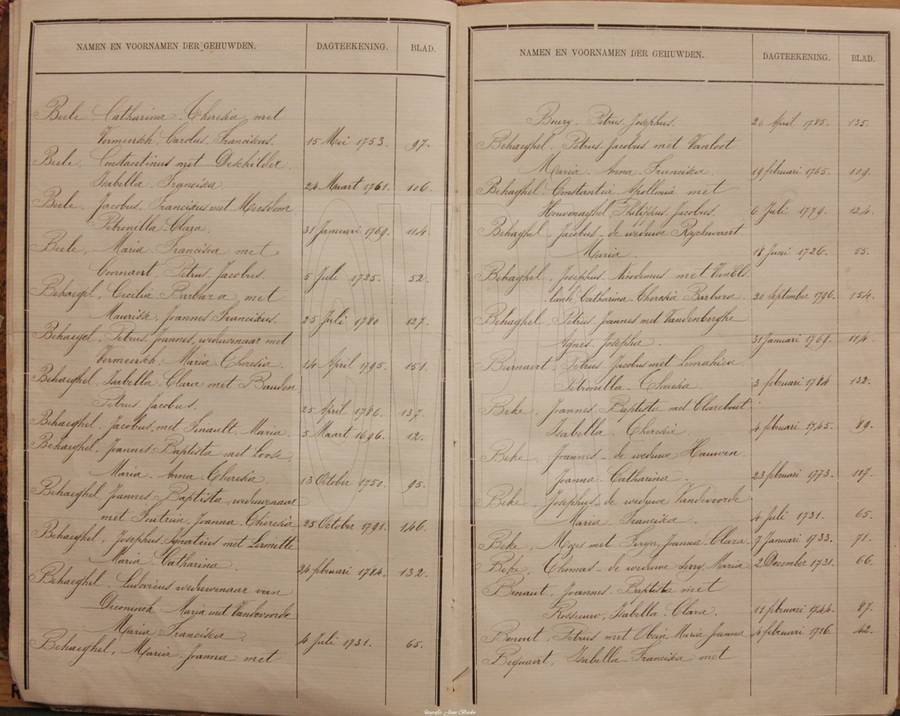 NAMEN EN VOORNAMEN DER GEHUWDEN. DAGTEEKENING. BLAD.
Beele Catharina Theresia met
Vermeersch Carolus Franciscus. 15 Mei 1753. 97.
Beele Constantinus met Deschilder
Isabella Francisca 24 Maart 1761. 106.
Beele Jacobus Franciscus met
Petronella Clara. 31 Januari 1769. 114
Beele, Maria Francisca met
Petrus Jacobus. 5 Juli 1725. 52.
Behaegel, Cecilia Barbara met
Joannes Franciscus. 25 Juli 1780 127.
Behaegel, Petrus Joannes, weduwnaar met
Vermeersch Maria Theresia 14 April 1795. 151.
Behaeghel, Isabella Clara met
Petrus Jacobus. 25 April 1786. 137.
Behaeghel, Jacobus, met Maria. 5 Maart 1696. 12.
Behaeghel, Joannes Baptista met Loose
Maria Anna Theresia 13 October 1750. 95.
Behaeghel Joannes Baptista weduwnaar
met Joanna Theresia 25 October 1791. 146.
Behaeghel, Josephus Ignatius met
Maria Catharina. 24 februari 1784. 132.
Behaeghel, Ludovicus weduwenaar van
Deconinck Maria met Vandevoorde
Maria Francisca 4 Juli 1731. 65.
Behaeghel, Maria Joanna met
NAMEN EN VOORNAMEN DER GEHUWDEN. DAGTEEKENING. BLAD.
Petrus Josephus. April 1785. 135.
Behaeghel, Petrus Jacobus met Vanloot
Maria Anna Francisca 19 februari 1765. 109.
Behaghel Constantia Apollonia met
Philippus Jacobus. 6 Juli 1779. 124.
Behaghel Jacobus de weduwe Ryckewaert
Maria. 18 Juni 1726. 55.
Behaghel, Josephus met
Catharina Theresia Barbara. 20 September 1796. 154.
Behaghel Petrus Joannes met Vandenberghe
Agnes Josepha. 31 Januari 1769. 114.
Petrus Jacobus met
Petronilla Theresia 3 februari 1784 132.
Beke, Joannes Baptista met Clarebout
Isabella Theresia 4 februari 1745. 89.
Beke, Joannes de weduwe
Joanna Catharina. 23 februari 1773. 117.
Beke, Josephus de weduwe Vandevoorde
Maria Francisca. 4 Juli 1731. 65.
Beke, met Joanna Clara. 7 Januari 1733. 71.
Beke, Thomas de weduwe Maria 2 December 1731. 66.
Benaut, Joannes Baptista met
Rosseeuw, Isabella Clara. 11 februari 1744. 87.
Benout, Petrus met Maria Joanna 4 februari 1716. 42.
Bequaert, Isabella Francisca met